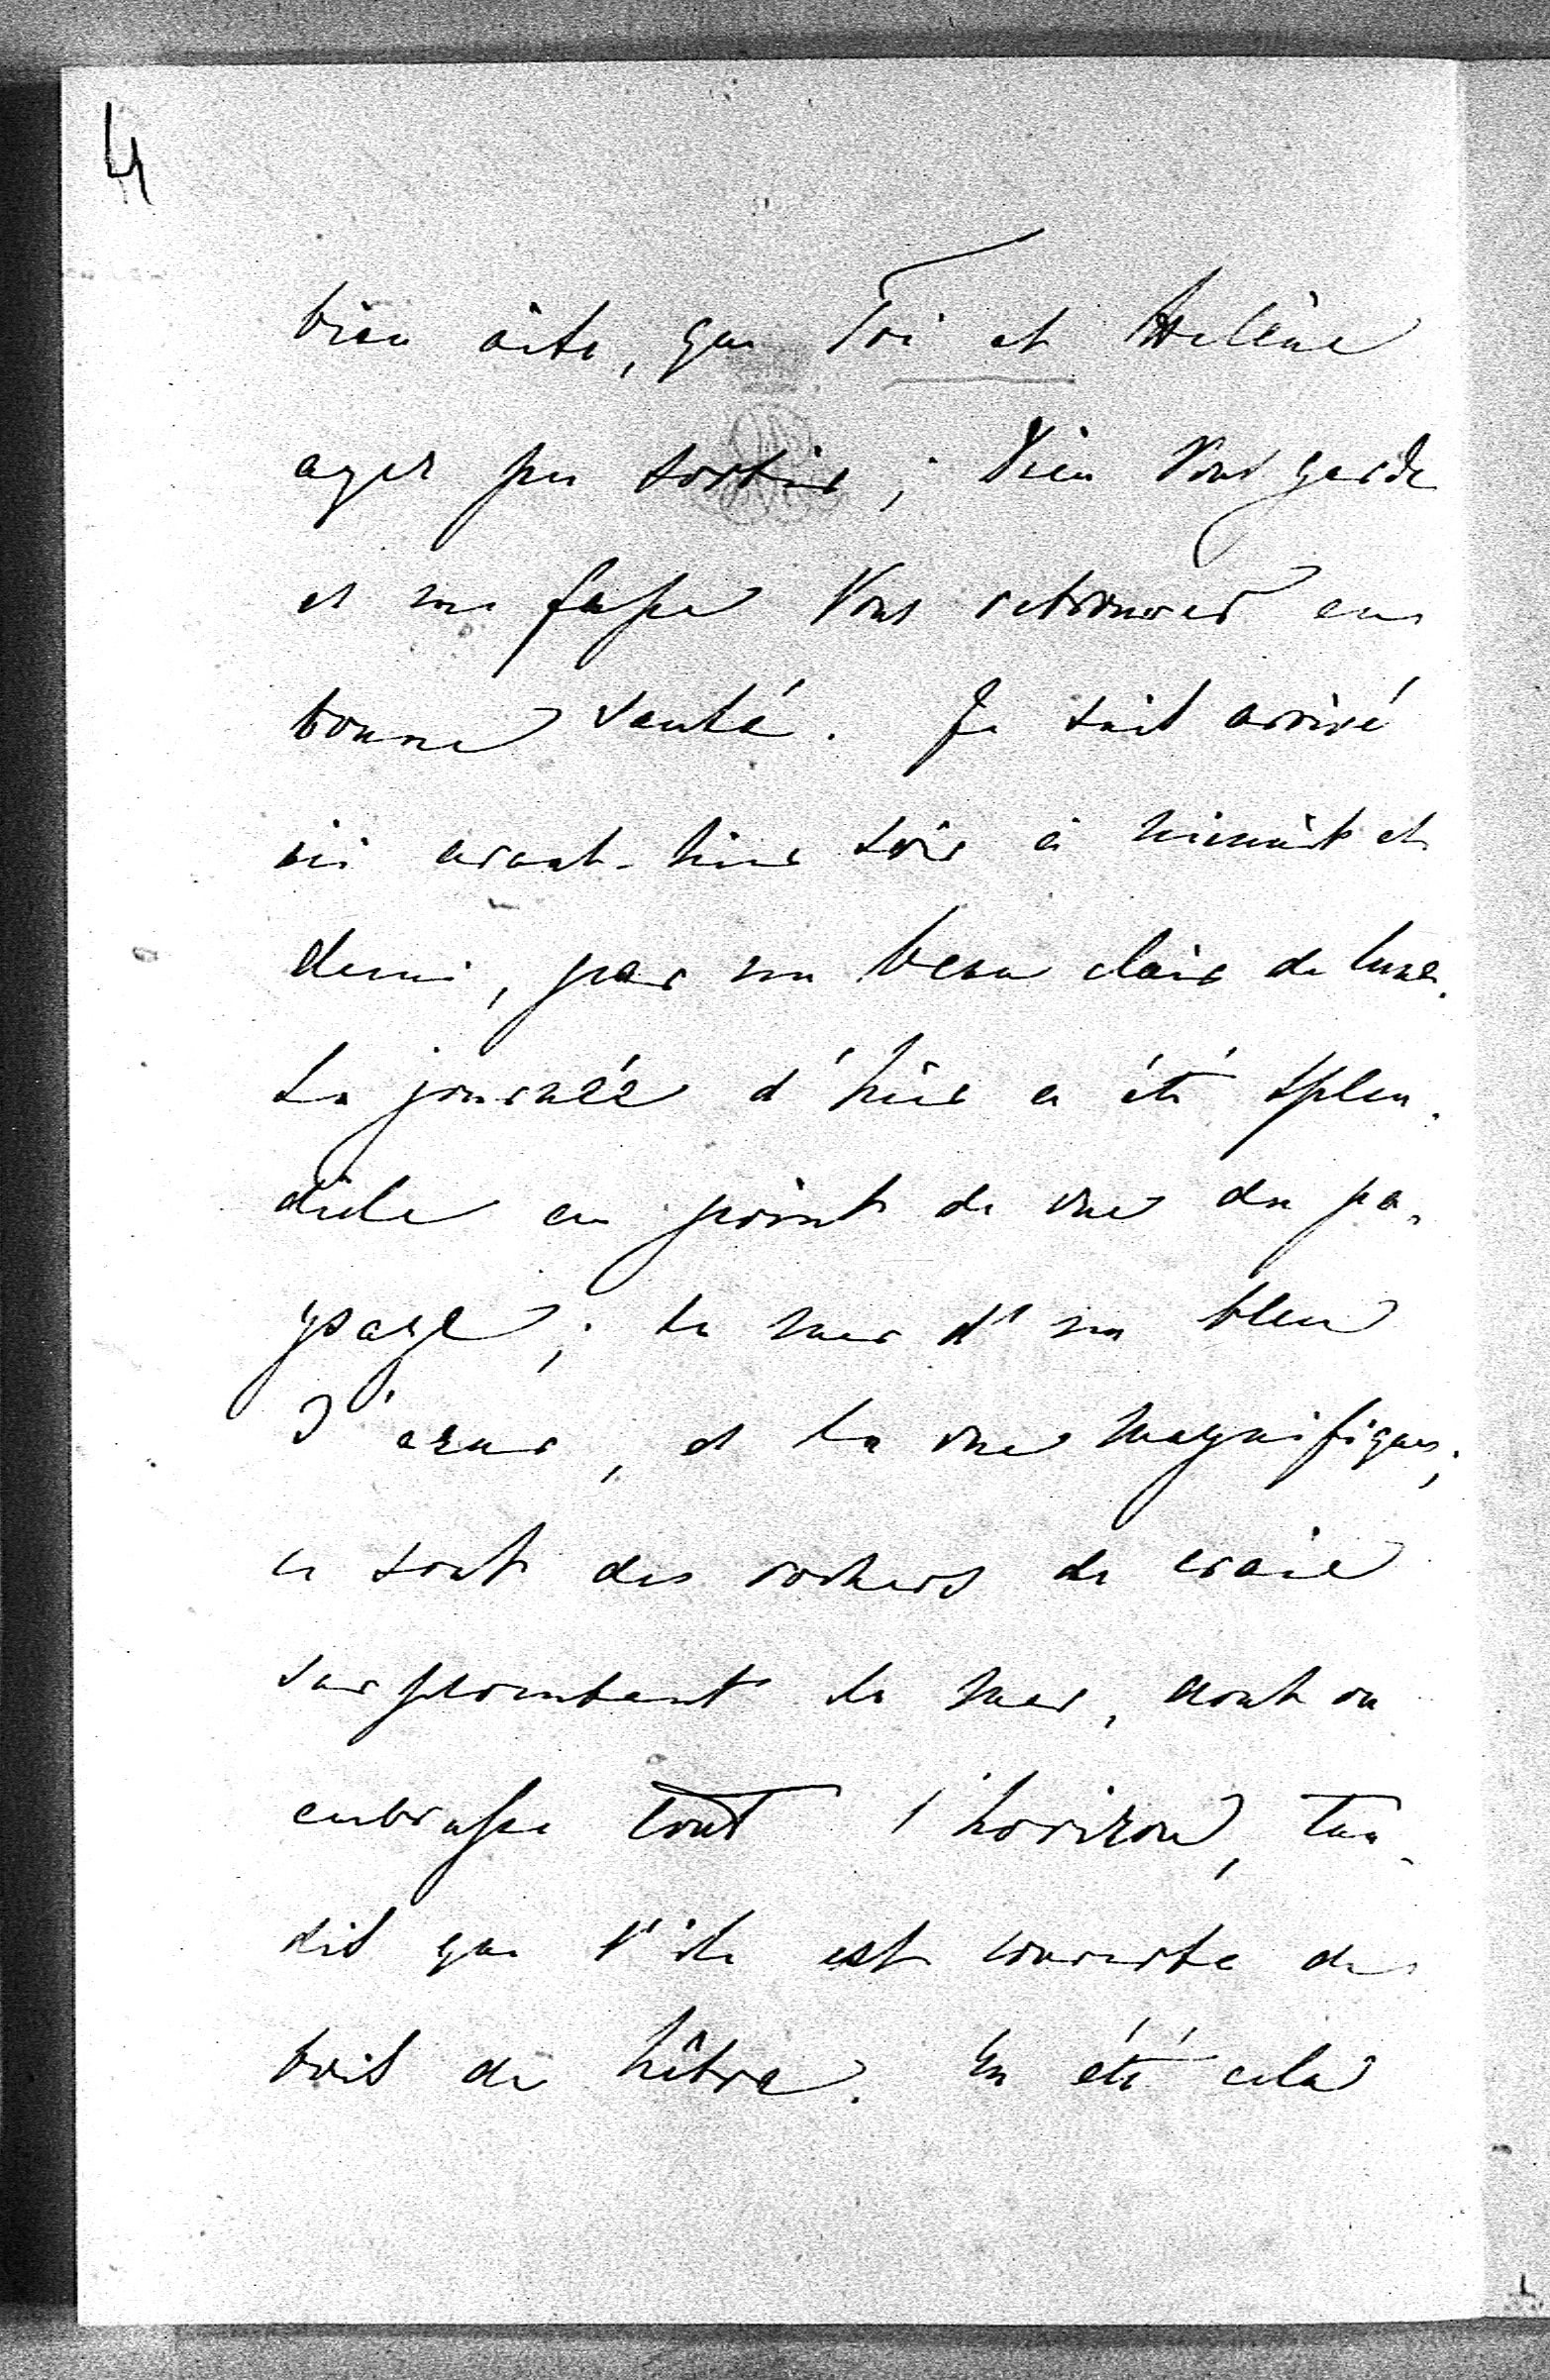 4
bien vite, que Toi et Hélène
ayez pu sortir ; Dieu Vous garde
et me fasse Vous retrouver en
bonne santé. Je suis arrivé
ici avant-hier soir à minuit et
demi, par un beau clair de lune.
La journée d'hier a été splen-
dide au point de vue du pa-
ysage ; la mer d'un bleu
d'azur, et la vue magnifique ;
ce sont des rochers de craie
surplombant la mer, dont on
embrasse tout l'horizon, tan-
dis que l'île est couverte de
bois de hêtre. En été cela